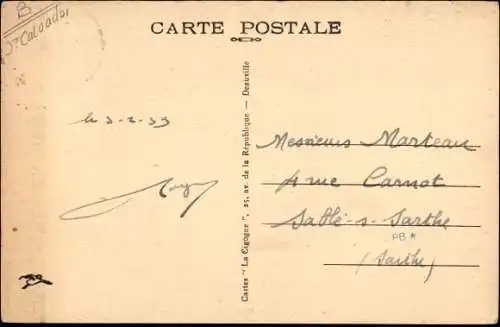 B
Calvados
CARTE POSTALE
le 3-2-39
Cartes "La Cigogne", 25, av. de la République — Deauville
Messieurs Marteau
4 rue Carnot
Sablé-s-Sarthe
AB *
(Sarthe)